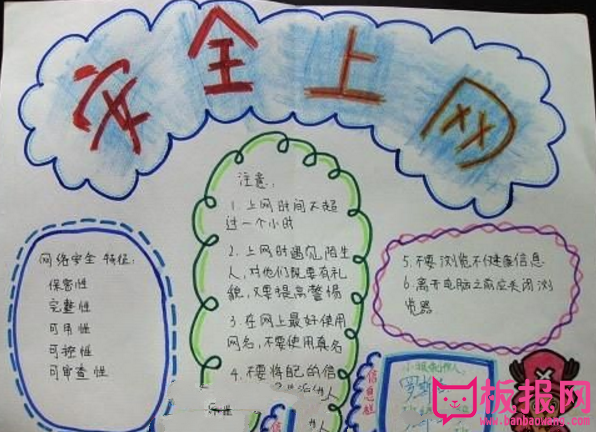 安全上网
网络安全 特征：
保密性
完整性
可用性
可控性
可审查性
注意：
1. 上网时间不超
过一个小时
2. 上网时遇见陌生
人，对他们既要有礼
貌，又要提高警惕
3. 在网上最好使用
网名，不要使用真名
4. 不要将自己的信
人
5. 不要浏览不健康信息
6. 离开电脑之前应关闭浏
览器
信息
板报网
www.banbaowang.com